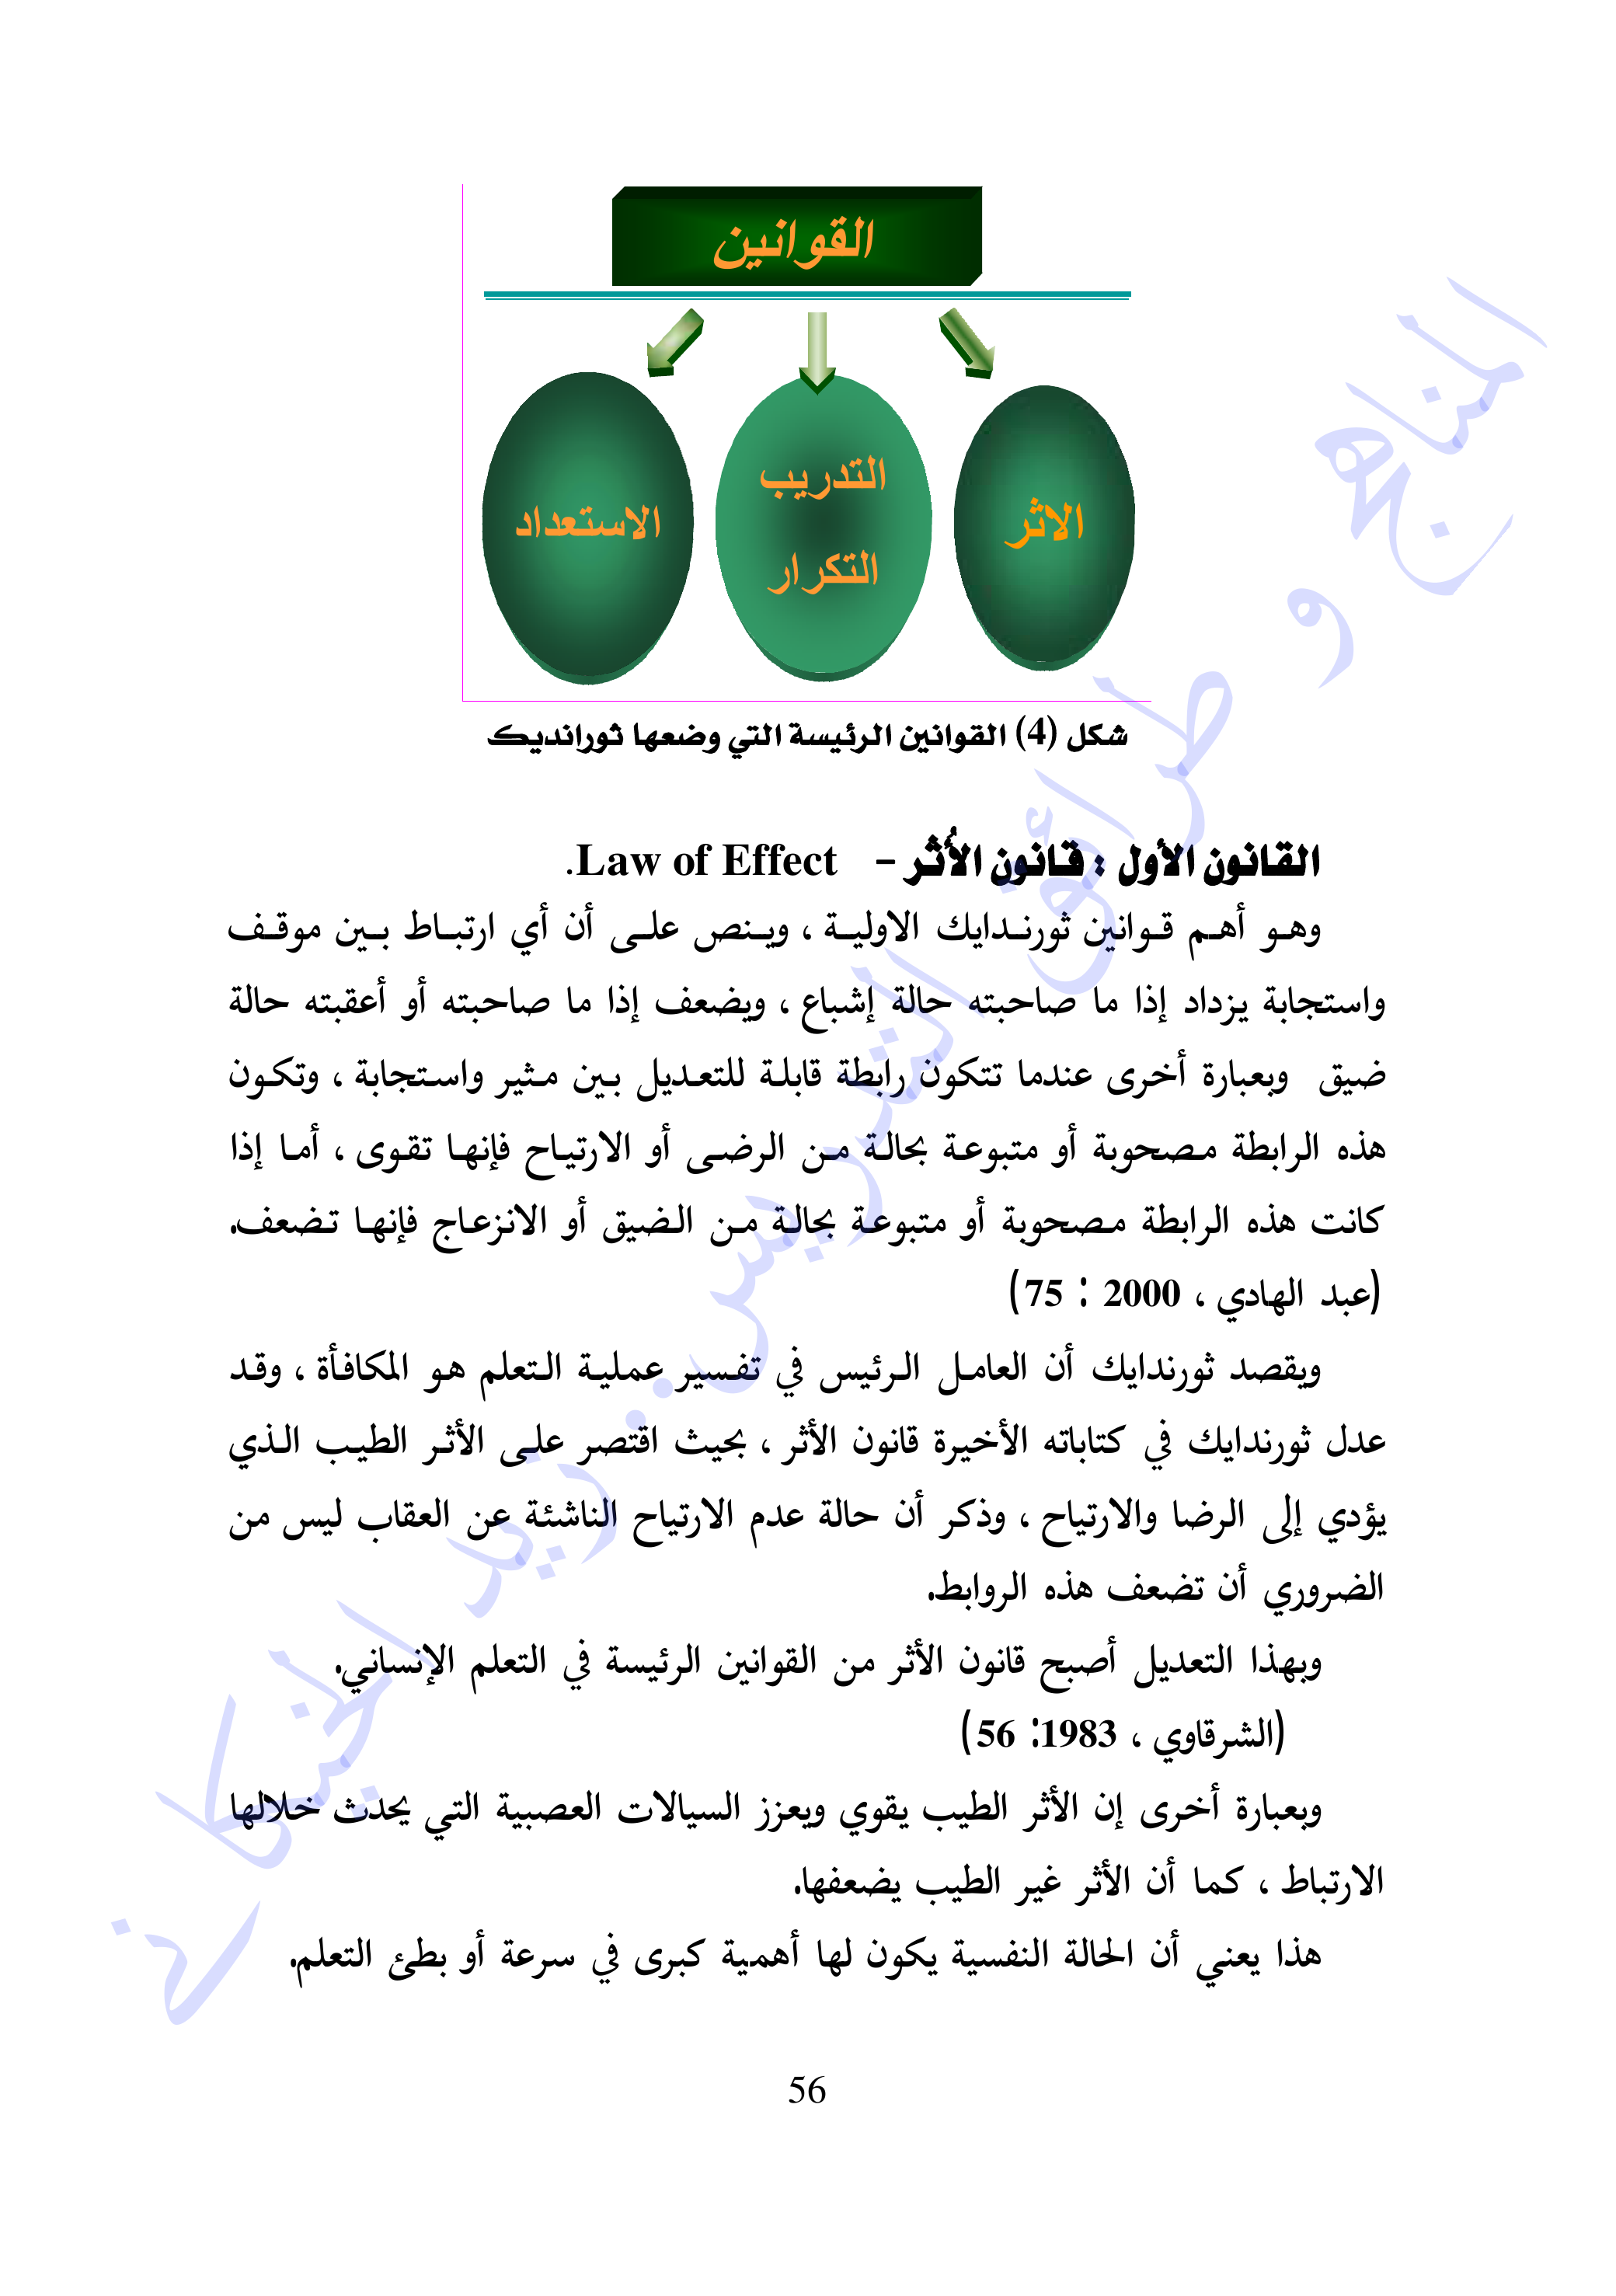 القوانين
الاثر
التدريب
التكرار
الاستعداد
شكل (4) القوانين الرئيسة التي وضعها ثورانديك
القانون الأول : قانون الأثر – Law of Effect.
وهو أهم قوانين ثورندايك الاولية ، وينص على أن أي ارتباط بين موقف
واستجابة يزداد إذا ما صاحبته حالة إشباع ، ويضعف إذا ما صاحبته أو أعقبته حالة
ضيق وبعبارة أخرى عندما تتكون رابطة قابلة للتعديل بين مثير واستجابة ، وتكون
هذه الرابطة مصحوبة أو متبوعة بحالة من الرضى أو الارتياح فإنها تقوى ، أما إذا
كانت هذه الرابطة مصحوبة أو متبوعة بحالة من الضيق أو الانزعاج فإنها تضعف.
(عبد الهادي ، 2000 : 75)
ويقصد ثورندايك أن العامل الرئيس في تفسير عملية التعلم هو المكافأة ، وقد
عدل ثورندايك في كتاباته الأخيرة قانون الأثر ، بحيث اقتصر على الأثر الطيب الذي
يؤدي إلى الرضا والارتياح ، وذكر أن حالة عدم الارتياح الناشئة عن العقاب ليس من
الضروري أن تضعف هذه الروابط.
وبهذا التعديل أصبح قانون الأثر من القوانين الرئيسة في التعلم الإنساني.
(الشرقاوي ، 1983: 56)
وبعبارة أخرى إن الأثر الطيب يقوي ويعزز السيالات العصبية التي يحدث خلالها
الارتباط ، كما أن الأثر غير الطيب يضعفها.
هذا يعني أن الحالة النفسية يكون لها أهمية كبرى في سرعة أو بطئ التعلم.
56
المناهج و طرائق التدريس.. زيد الخيكاني